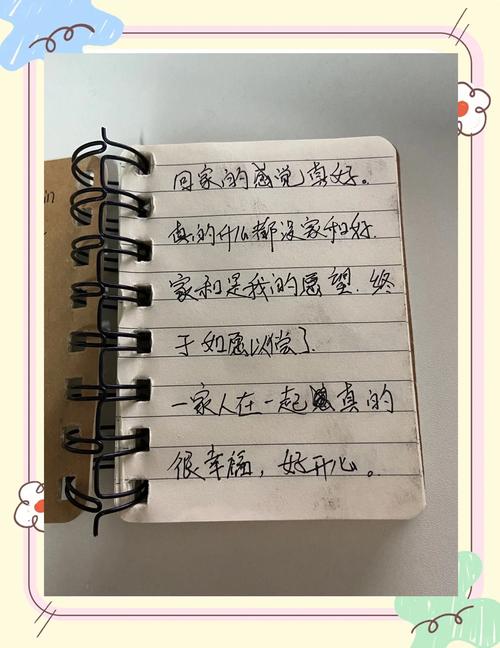 回家的感觉真好。
真的什么都没家和好.
家和是我的愿望.终
于如愿以偿了.
一家人在一起真的
很幸福，好开心。
in